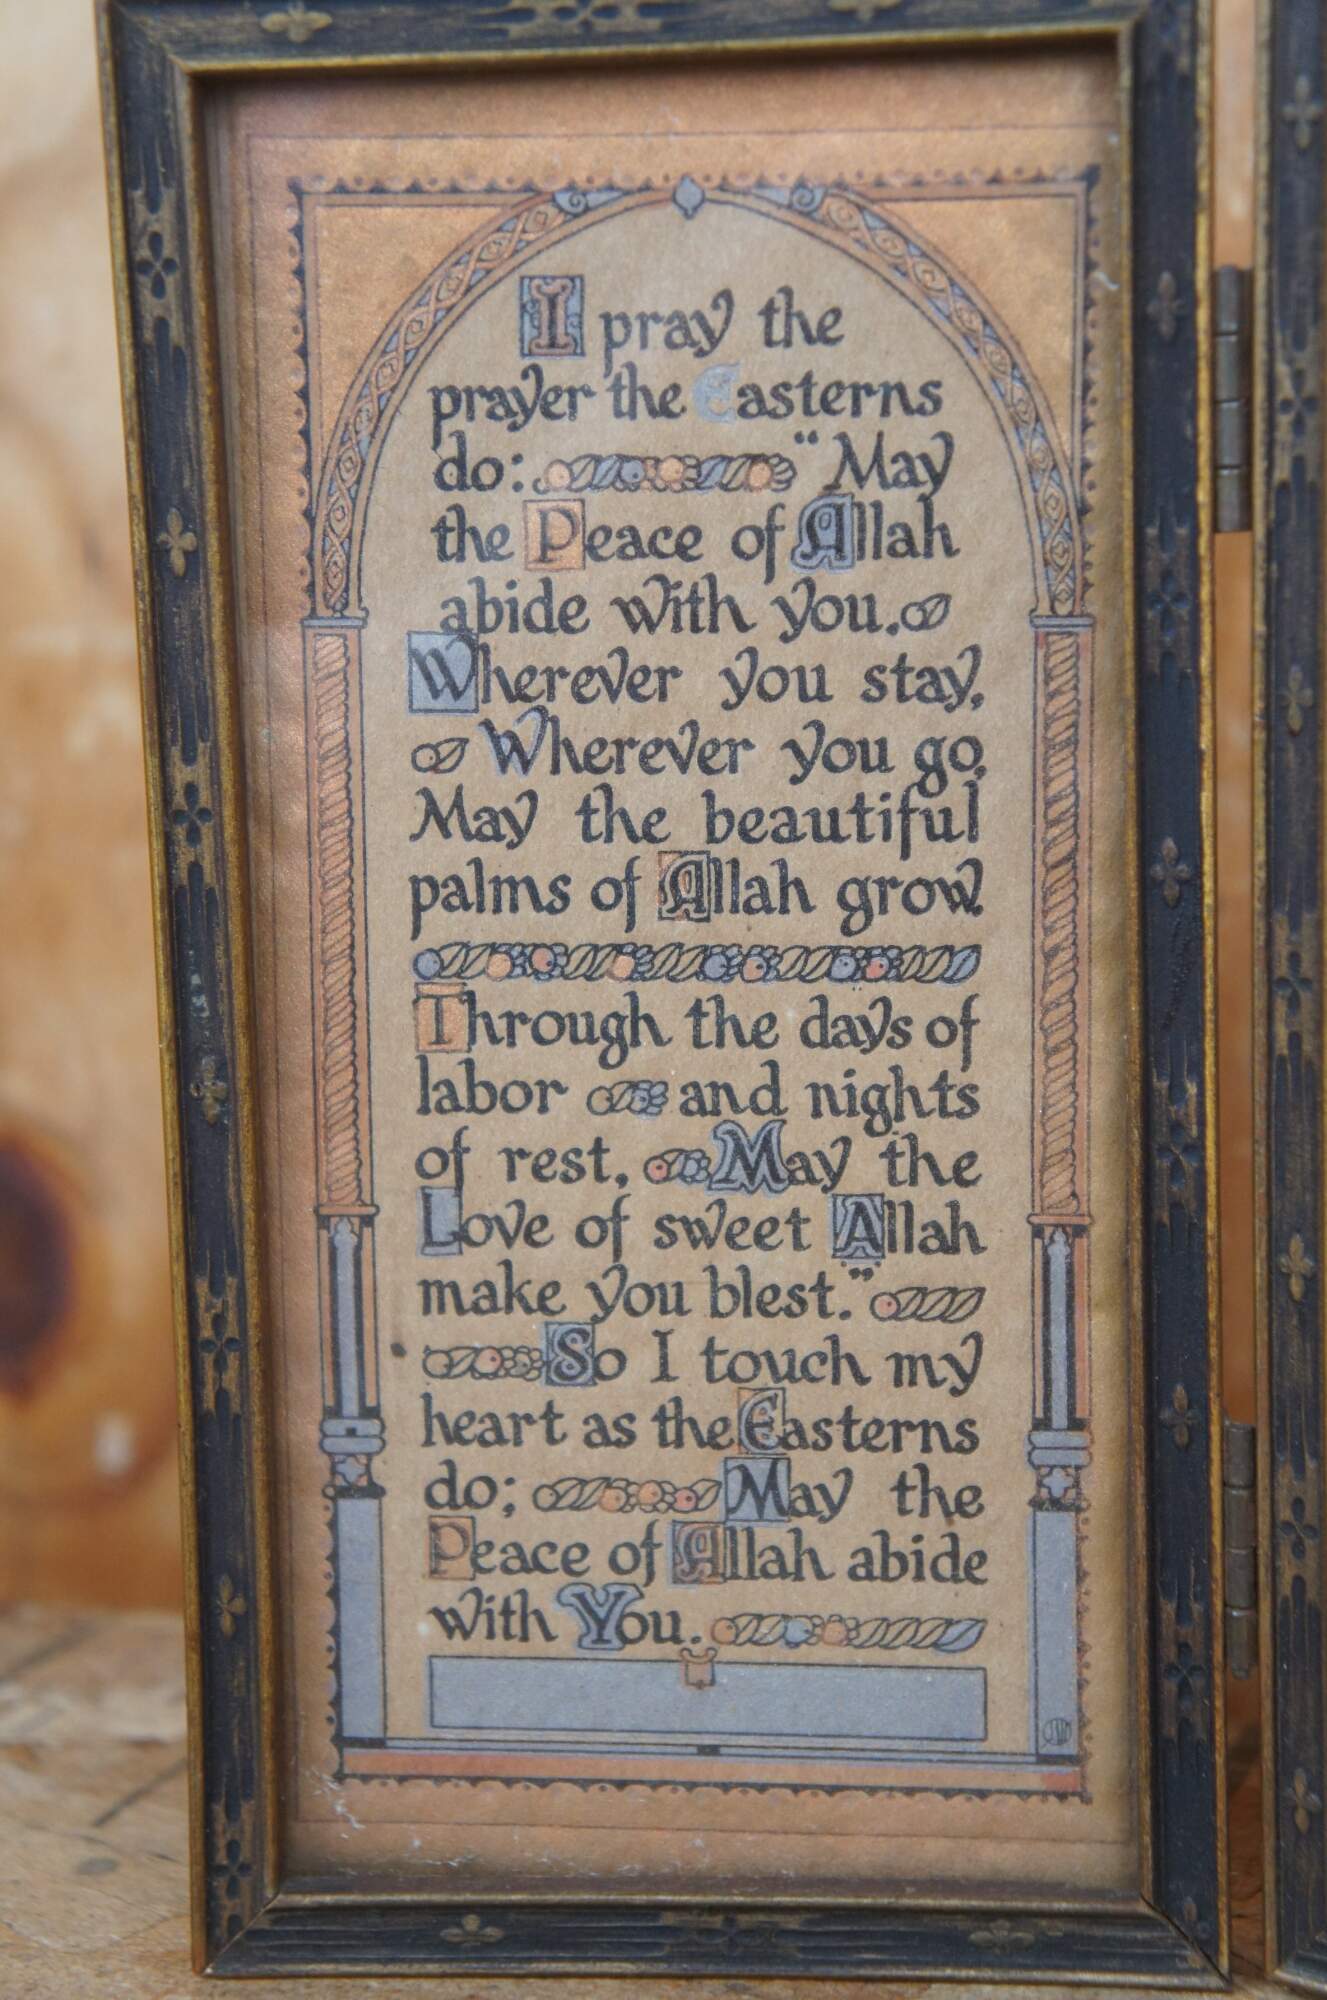 I pray the
prayer the Easterns
do: "May
the Peace of Allah
abide with you.
Wherever you stay,
Wherever you go,
May the beautiful
palms of Allah grow.
Through the days of
labor and nights
of rest, May the
Love of sweet Allah
make you blest."
So I touch my
heart as the Easterns
do; May the
Peace of Allah abide
with You.